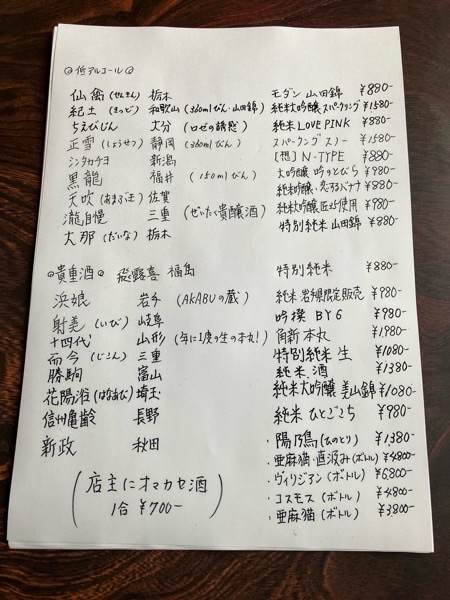 ◎低アルコール◎
仙禽(せんきん) 栃木 モダン 山田錦 ¥880-
紀土(きっど) 和歌山(360mlびん・山田錦) 純米大吟醸 スパークリング ¥1580-
ちえびじん 大分(ロゼの誘惑) 純米 LOVE PINK ¥880-
正雪(しょうせつ) 静岡(360mlびん) スパークリングスノー ¥1580-
シンタカチヨ 新潟 N-TYPE ¥880-
黒龍 福井(150mlびん) 大吟醸 吟のとびら ¥980-
天吹(あまぶき) 佐賀 純米吟醸・恋するバナナ ¥880-
瀧自慢 三重(ぜいたく貴醸酒) 純米大吟醸 匠が使用 ¥980-
大那(だいな) 栃木 特別純米 山田錦 ¥880-
◎貴重酒◎ 飛露喜 福島 特別純米 ¥880-
浜娘 岩手(AKABUの蔵) 純米 岩手県限定販売 ¥980-
射美(いび) 岐阜 吟撰 BY6 ¥980-
十四代 山形(年に1度の生の本丸!) 角新 本丸 ¥1980-
而今(じこん) 三重 特別純米 生 ¥1080-
勝駒 富山 純米酒 ¥1380-
花陽浴(はなあび) 埼玉 純米大吟醸 美山錦 ¥1080-
信州亀齢 長野 純米 ひとごこち ¥980-
新政 秋田 ・陽乃鳥(ひのとり) ¥1380-
・亜麻猫・直汲み(ボトル) ¥4800-
・ヴィリジアン(ボトル) ¥6800-
・コスモス(ボトル) ¥4800-
・亜麻猫(ボトル) ¥3800-
(店主にオマカセ酒
1合 ¥700-)